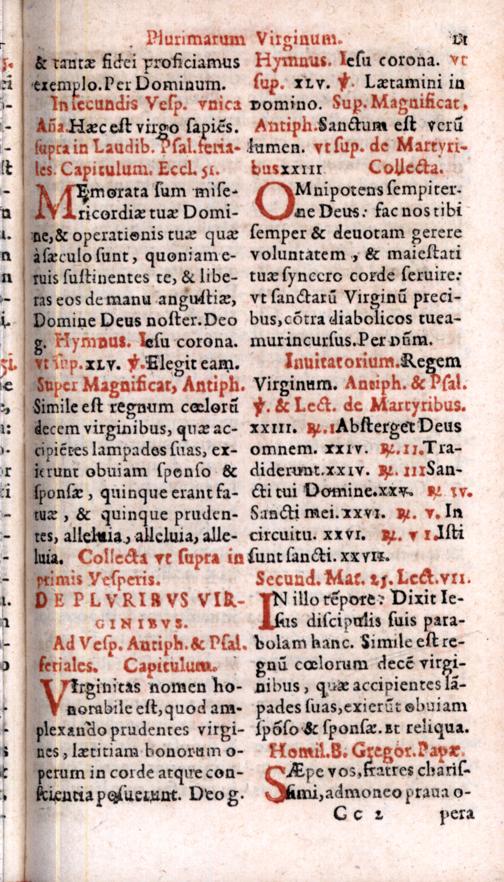 Plurimarum Virginum. 151
& tantæ fidei proficiamus
exemplo. Per Dominum.
In secundis Vesp. vnica
Aña. Hæc est virgo sapiẽs.
supra in Laudib. Psal. feria-
les. Capitulum. Eccl. 51.
MEmorata sum mise-
ricordiæ tuæ Domi-
ne, & operationis tuæ quæ
à sæculo sunt, quoniam e-
ruis sustinentes te, & libe-
ras eos de manu angustiæ,
Domine Deus noster. Deo
g. Hymnus. Iesu corona.
vt sup. XLV. ℣. Elegit eam.
Super Magnificat, Antiph.
Simile est regnum cœlorũ
decem virginibus, quæ ac-
cipiẽtes lampades suas, ex-
ierunt obuiam sponso &
sponsæ, quinque erant fa-
tuæ, & quinque pruden-
tes, alleluia, alleluia, alle-
luia. Collecta vt supra in
primis Vesperis.
DE PLVRIBVS VIR-
GINIBVS.
Ad Vesp. Antiph. & Psal.
feriales. Capitulum.
VIrginitas nomen ho-
norabile est, quod am-
plexando prudentes virgi-
nes, lætitiam bonorum o-
perum in corde atque con-
scientia posuerunt. Deo g.
Hymnus. Iesu corona. vt
sup. XLV. ℣. Lætamini in
Domino. Sup. Magnificat,
Antiph. Sanctum est verũ
lumen. vt sup. de Martyri-
bus XXIII. Collecta.
OMnipotens sempiter-
ne Deus: fac nos tibi
semper & deuotam gerere
voluntatem, & maiestati
tuæ syncero corde seruire:
vt sanctarũ Virginũ preci-
bus, cõtra diabolicos tuea-
mur incursus. Per dñm.
Inuitatorium. Regem
Virginum. Antiph. & Psal.
℣. & Lect. de Martyribus.
XXIII. ℞. I Absterget Deus
omnem. XXIV. ℞. II. Tra-
diderunt. XXIV. ℞. III San-
cti tui Domine. XXV. ℞. IV.
Sancti mei. XXVI. ℞. V. In
circuitu. XXVI. ℞. VI. Isti
sunt sancti. XXVII.
Secund. Mat. 25. Lect. VII.
IN illo tẽpore: Dixit Ie-
sus discipulis suis para-
bolam hanc. Simile est re-
gnũ cœlorum decẽ virgi-
nibus, quæ accipientes lã-
pades suas, exierũt obuiam
spõso & sponsæ. Et reliqua.
Homil. B. Gregor. Papæ.
SÆpe vos, fratres chariss-
simi, admoneo praua o-
Cc 2 pera